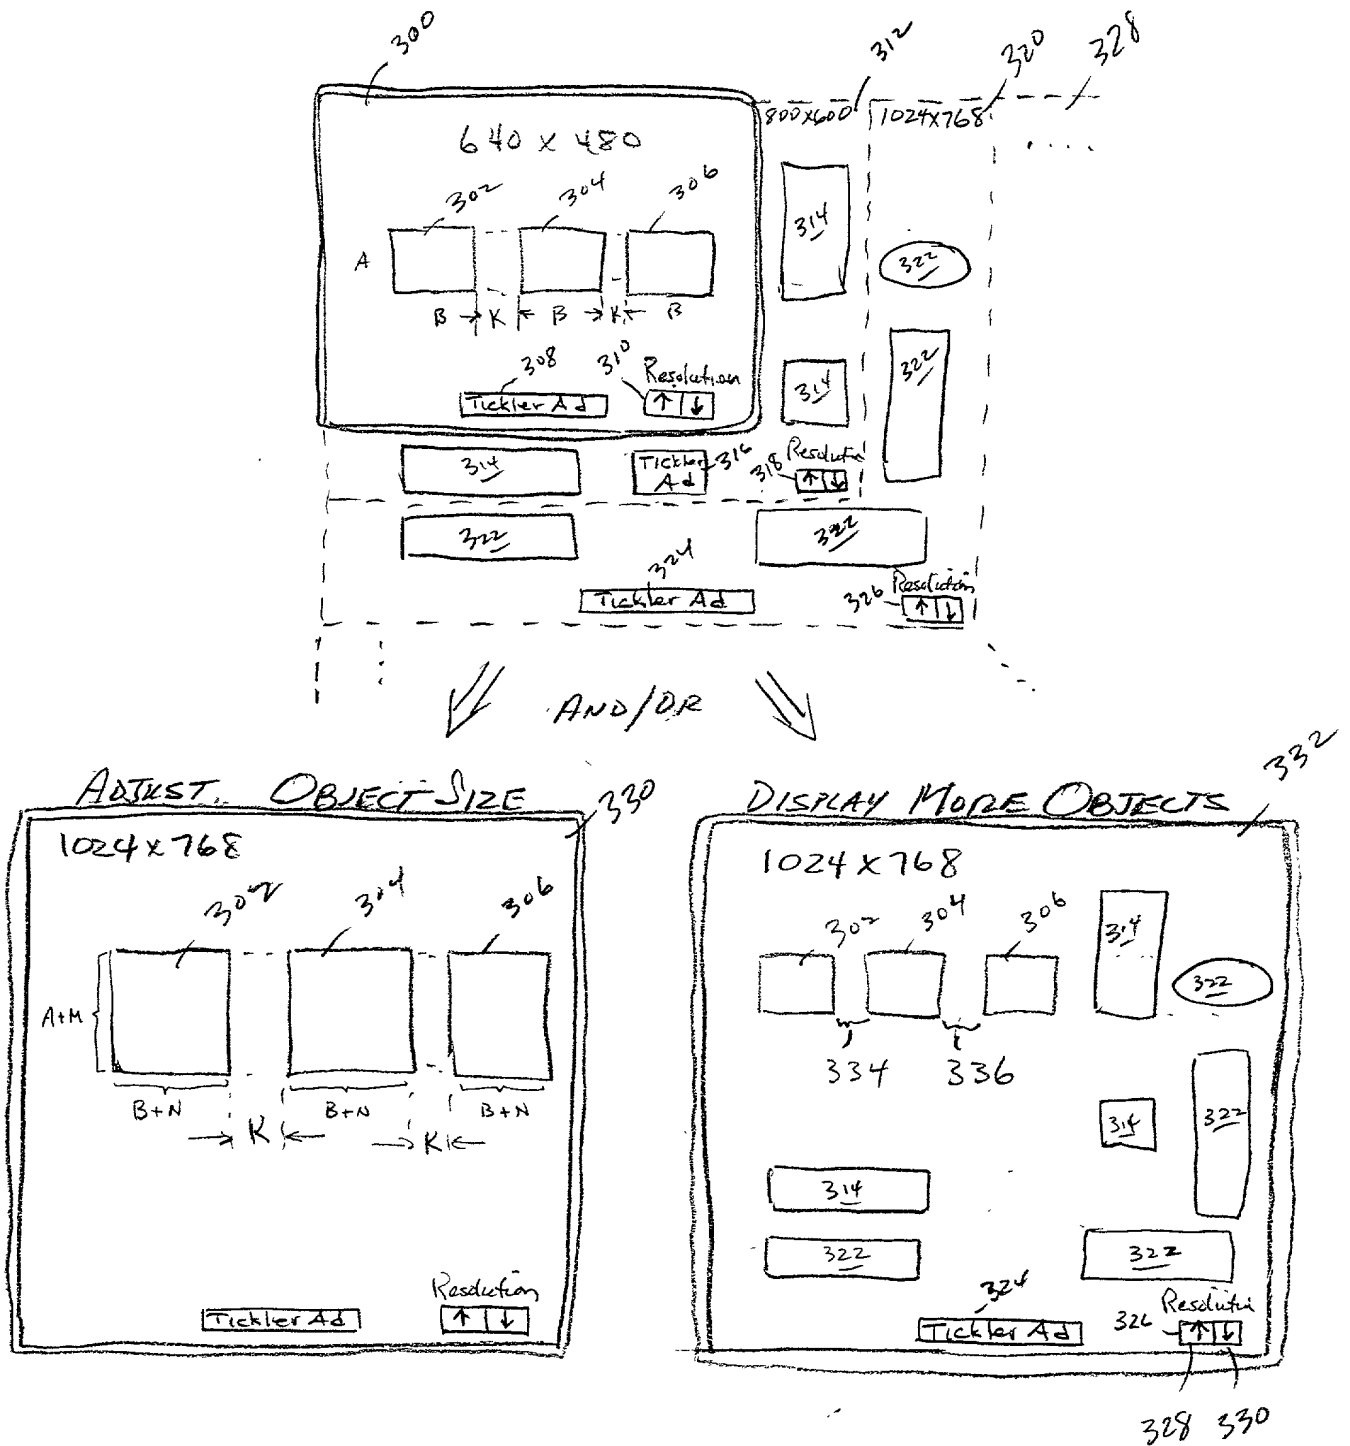 300
312
320
328
640 x 480
800x600
1024x768
302
304
306
314
322
A
B K B K B
322
308
310
Resolution
314
Tickler Ad
↑ ↓
314
Tickler Ad
316
318
Resolutio
↑ ↓
322
322
324
Tickler Ad
326
Resolution
↑ ↓
AND/OR
ADJUST OBJECT SIZE
330
1024 x 768
302
304
306
A+M
B+N
B+N
B+N
K
K
Resolution
Tickler Ad
↑ ↓
332
DISPLAY MORE OBJECTS
1024 x 768
302
304
306
314
322
334
336
314
322
314
322
322
324
Tickler Ad
Resolutio
326
↑ ↓
328
330